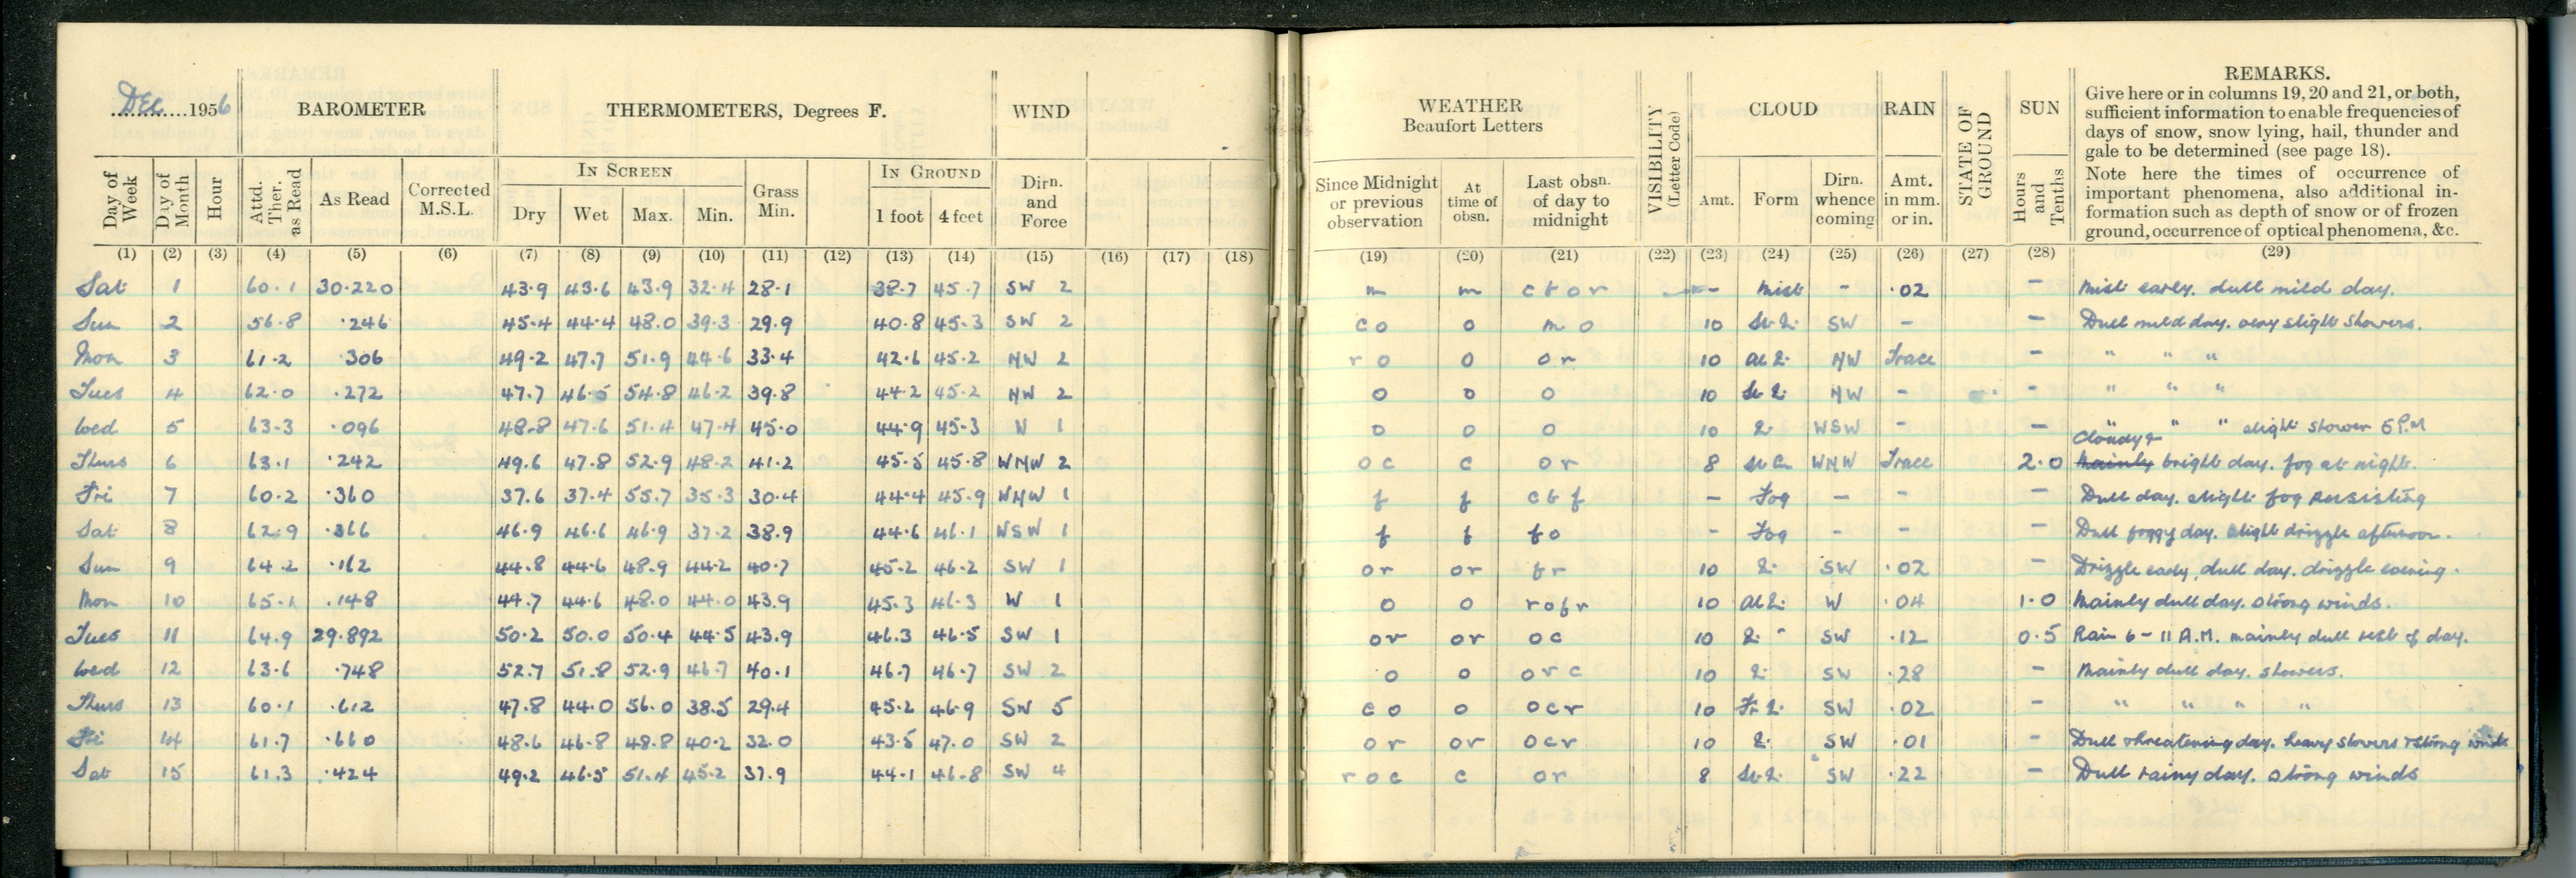 DEC 1956 BAROMETER THERMOMETERS, Degrees F. WIND
Day of Week Day of Month Hour Attd. Ther. as Read As Read Corrected M.S.L. IN SCREEN Dry Wet Max. Min. Grass Min. IN GROUND 1 foot 4 feet Dirn. and Force
(1) (2) (3) (4) (5) (6) (7) (8) (9) (10) (11) (12) (13) (14) (15) (16) (17) (18)
Sat 1 60.1 30.220 43.9 43.6 43.9 32.4 28.1 38.7 45.7 SW 2
Sun 2 56.8 .246 45.4 44.4 48.0 39.3 29.9 40.8 45.3 SW 2
Mon 3 61.2 .306 49.2 47.7 51.9 44.6 33.4 42.6 45.2 NW 2
Tues 4 62.0 .272 47.7 46.5 54.8 46.2 39.8 44.2 45.2 NW 2
Wed 5 63.3 .096 48.8 47.6 51.4 47.4 45.0 44.9 45.3 W 1
Thurs 6 63.1 .242 49.6 47.8 52.9 48.2 41.2 45.5 45.8 WNW 2
Fri 7 60.2 .360 37.6 37.4 55.7 35.3 30.4 44.4 45.9 WNW 1
Sat 8 62.9 .366 46.9 46.6 46.9 37.2 38.9 44.6 46.1 WSW 1
Sun 9 64.2 .162 44.8 44.6 48.9 44.2 40.7 45.2 46.2 SW 1
Mon 10 65.1 .148 44.7 44.6 48.0 44.0 43.9 45.3 46.3 W 1
Tues 11 64.9 29.892 50.2 50.0 50.4 44.5 43.9 46.3 46.5 SW 1
Wed 12 63.6 .748 52.7 51.8 52.9 46.7 40.1 46.7 46.7 SW 2
Thurs 13 60.1 .612 47.8 44.0 56.0 38.5 29.4 45.2 46.9 SW 5
Fri 14 61.7 .660 48.6 46.8 48.8 40.2 32.0 43.5 47.0 SW 2
Sat 15 61.3 .424 49.2 46.5 51.4 45.2 37.9 44.1 46.8 SW 4
WEATHER Beaufort Letters VISIBILITY (Letter Code) CLOUD RAIN STATE OF GROUND SUN REMARKS.
Give here or in columns 19, 20 and 21, or both,
sufficient information to enable frequencies of
days of snow, snow lying, hail, thunder and
gale to be determined (see page 18).
Note here the times of occurrence of
important phenomena, also additional in-
formation such as depth of snow or of frozen
ground, occurrence of optical phenomena, &c.
Since Midnight or previous observation At time of obsn. Last obsn. of day to midnight Amt. Form Dirn. whence coming Amt. in mm. or in. Hours and Tenths
(19) (20) (21) (22) (23) (24) (25) (26) (27) (28) (29)
m m c b o r - Mist - .02 - Mist early. dull mild day.
c o o m o 10 SW - - Dull mild day. very slight showers.
r o o o r 10 NW Trace - " " "
o o o 10 NW - - " " "
o o o 10 WSW - - " " " slight shower 5 P.M
o c c o r 8 WNW Trace 2.0 Cloudy & Mainly bright day. fog at night.
f f c b f - Fog - - - Dull day. slight fog persisting
f f f o - Fog - - - Dull foggy day. slight drizzle afternoon.
o r o r f r 10 SW .02 - Drizzle early, dull day. drizzle evening.
o o r o f r 10 W .04 1.0 Mainly dull day. strong winds.
o r o r o c 10 SW .12 0.5 Rain 6 - 11 A.M. mainly dull rest of day.
o o o r c 10 SW .28 - Mainly dull day. showers.
c o o o c r 10 SW .02 - " " " "
o r o r o c r 10 SW .01 - Dull threatening day. heavy showers & strong winds
r o c c o r 8 SW .22 - Dull rainy day. strong winds